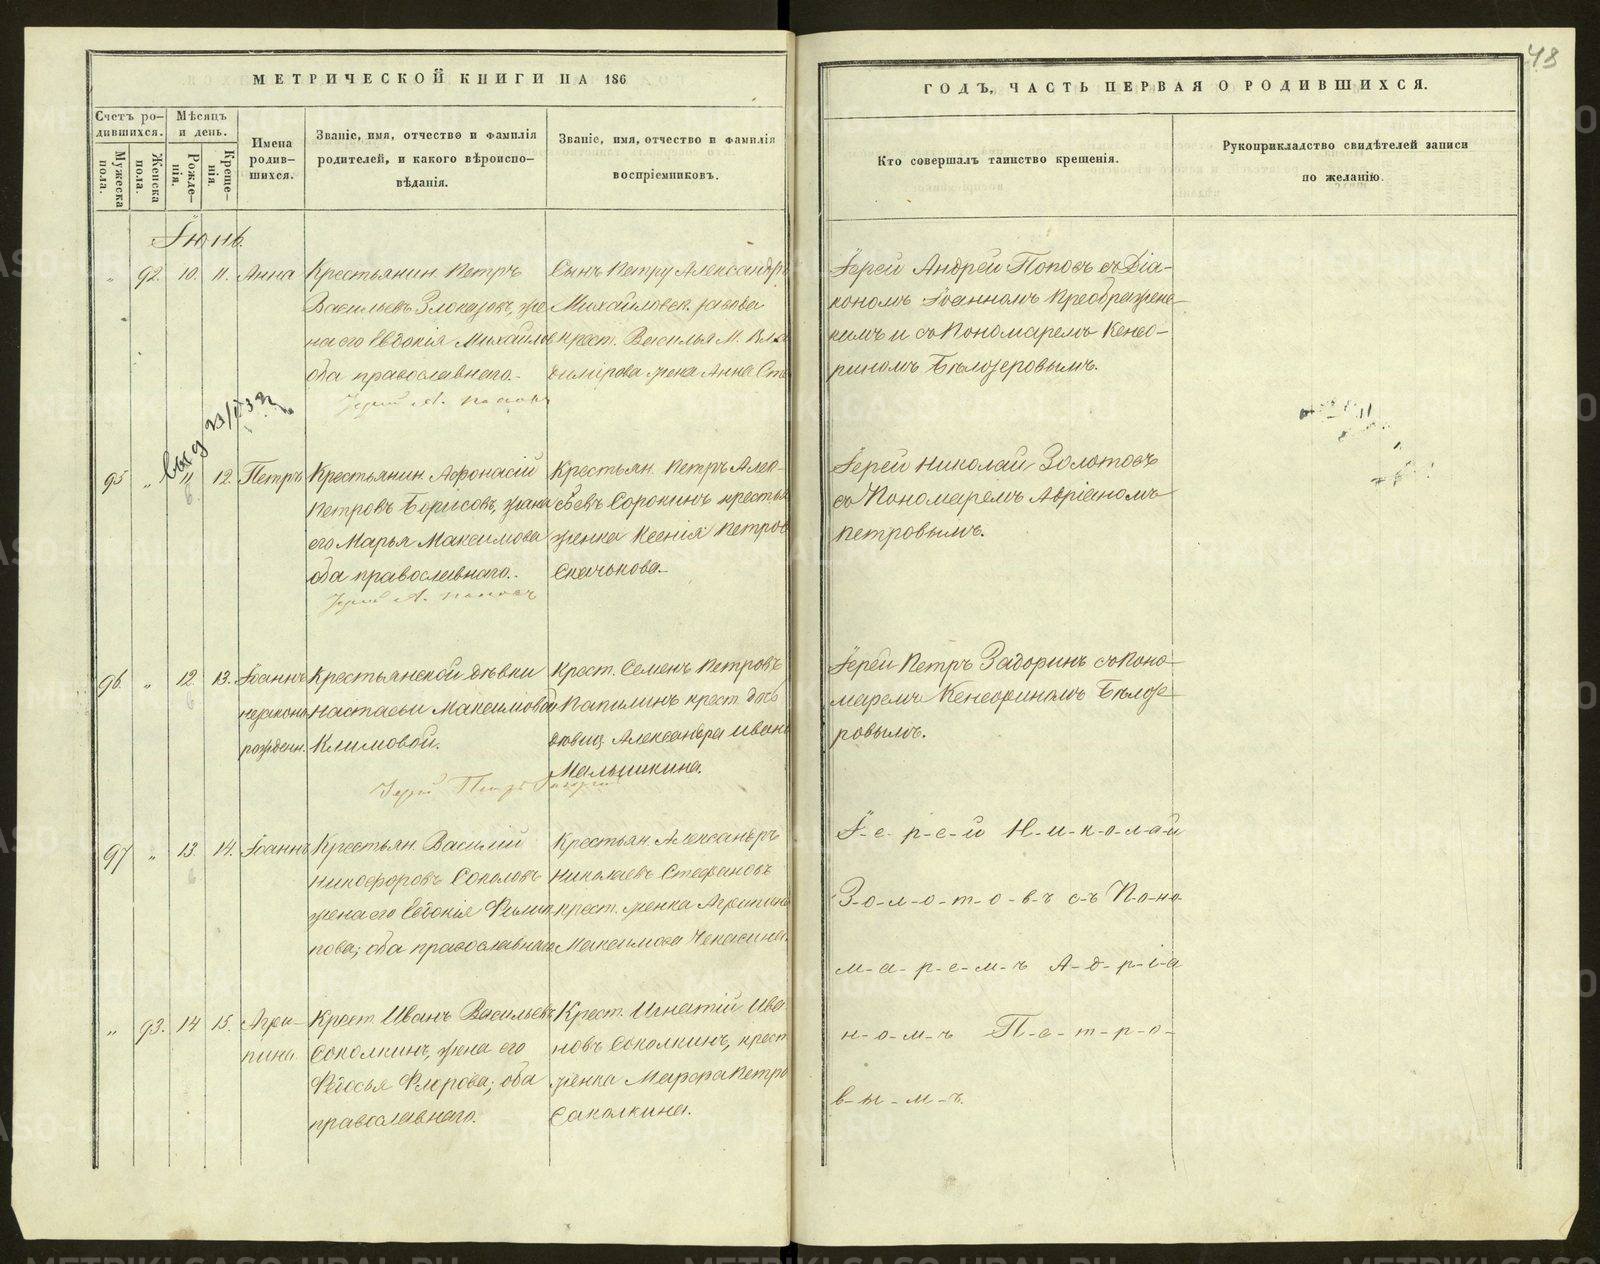 48
МЕТРИЧЕСКОЙ КНИГИ НА 186
ГОДЪ, ЧАСТЬ ПЕРВАЯ О РОДИВШИХСЯ.
Счетъ ро-
дившихся.
Мужеска
пола.
Женска
пола.
Мѣсяцъ
и день.
Рожде-
нія.
Креще-
нія.
Имена
родив-
шихся.
Званіе, имя, отчество и фамилія
родителей, и какого вѣроиспо-
вѣданія.
Званіе, имя, отчество и фамилія
воспріемниковъ.
Кто совершалъ таинство крещенія.
Рукоприкладство свидѣтелей записи
по желанію.
Іюнь.
" 92. 10. 11. Анна
Крестьянин Петръ
Васильевъ Злоказовъ, же
на его Евдокія Михайлов
оба православнаго.
Іерей А. Поповъ
Сынъ Петру Александръ
Михайловск. завода
крест. Василья М. Вла
димірова жена Анна Ст
Іерей Андрей Поповъ съ Діа-
кономъ Іоанномъ Преображенс-
кимъ и съ Пономаремъ Кенсо-
риномъ Бѣлозеровымъ.
выд 23/I 32
95 " 11 12. Петръ
Крестьянин Афонасій
Петровъ Борисовъ, жена
его Марья Максимова
оба православнаго.
Іерей А. Поповъ
Крестьян. Петръ Алек-
сѣевъ Сорокинъ крестья
женка Ксенія Петров
Скачкова.
Іерей Николай Золотовъ
съ Пономаремъ Адріаномъ
Петровымъ.
96. " 12 13. Іоаннъ
незаконн
рожден.
Крестьянской дѣвки
Настасьи Максимовой
Климовой.
Іерей Петръ Задоринъ
Крест. Семенъ Петровъ
Папилинъ крест дочь
дѣвица Александра Иван
Малышкина.
Іерей Петръ Задоринъ съ Поно-
маремъ Кенсориномъ Бѣлозе-
ровымъ.
97 " 13. 14. Іоаннъ
Крестьян. Василій
Никифоровъ Соколовъ
жена его Евдокія Филип
пова; оба православнаго
Крестьян Александръ
Николаевъ Стефановъ
крест. женка Агрипина
Максимова Чекасина.
І-е-р-е-й Н-и-к-о-л-а-й
З-о-л-о-т-о-в-ъ с-ъ П-о-но-
м-а-р-е-м-ъ А-д-р-і-а
н-о-м-ъ П-е-т-р-о-
в-ы-м-ъ.
" 93. 14 15. Агри-
пина
Крест Иванъ Васильевъ
Соколкинъ, жена его
Федосья Флорова; оба
православнаго.
Крест. Игнатій Ива
новъ Соколкинъ, крест
женка Марфа Петро
Соколкина.